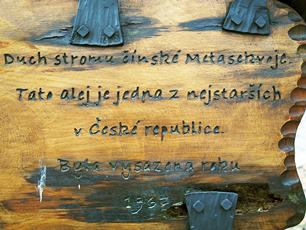 Duch stromu čínské Metasekvoje.
Tato alej je jedna z nejstarších
v České republice.
Byla vysazena roku